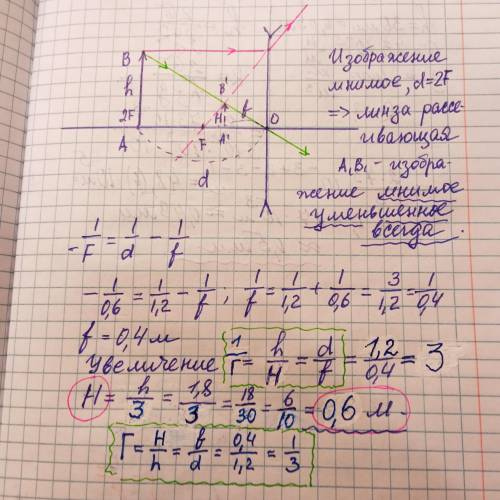 B
h
2F
A
B'
H₁
F
A'
f
O
d
Изображение
мнимое, d=2F
=> линза рассе-
ивающая
A₁B₁ - изобра-
жение мнимое
уменьшенное
всегда.
-1/F = 1/d - 1/f
-1/0,6 = 1/1,2 - 1/f ; 1/f = 1/1,2 + 1/0,6 = 3/1,2 = 1/0,4
f = 0,4 м
Увеличение 1/Г = h/H = d/f = 1,2/0,4 = 3
H = h/3 = 1,8/3 = 18/30 = 6/10 = 0,6 м.
Г = H/h = f/d = 0,4/1,2 = 1/3